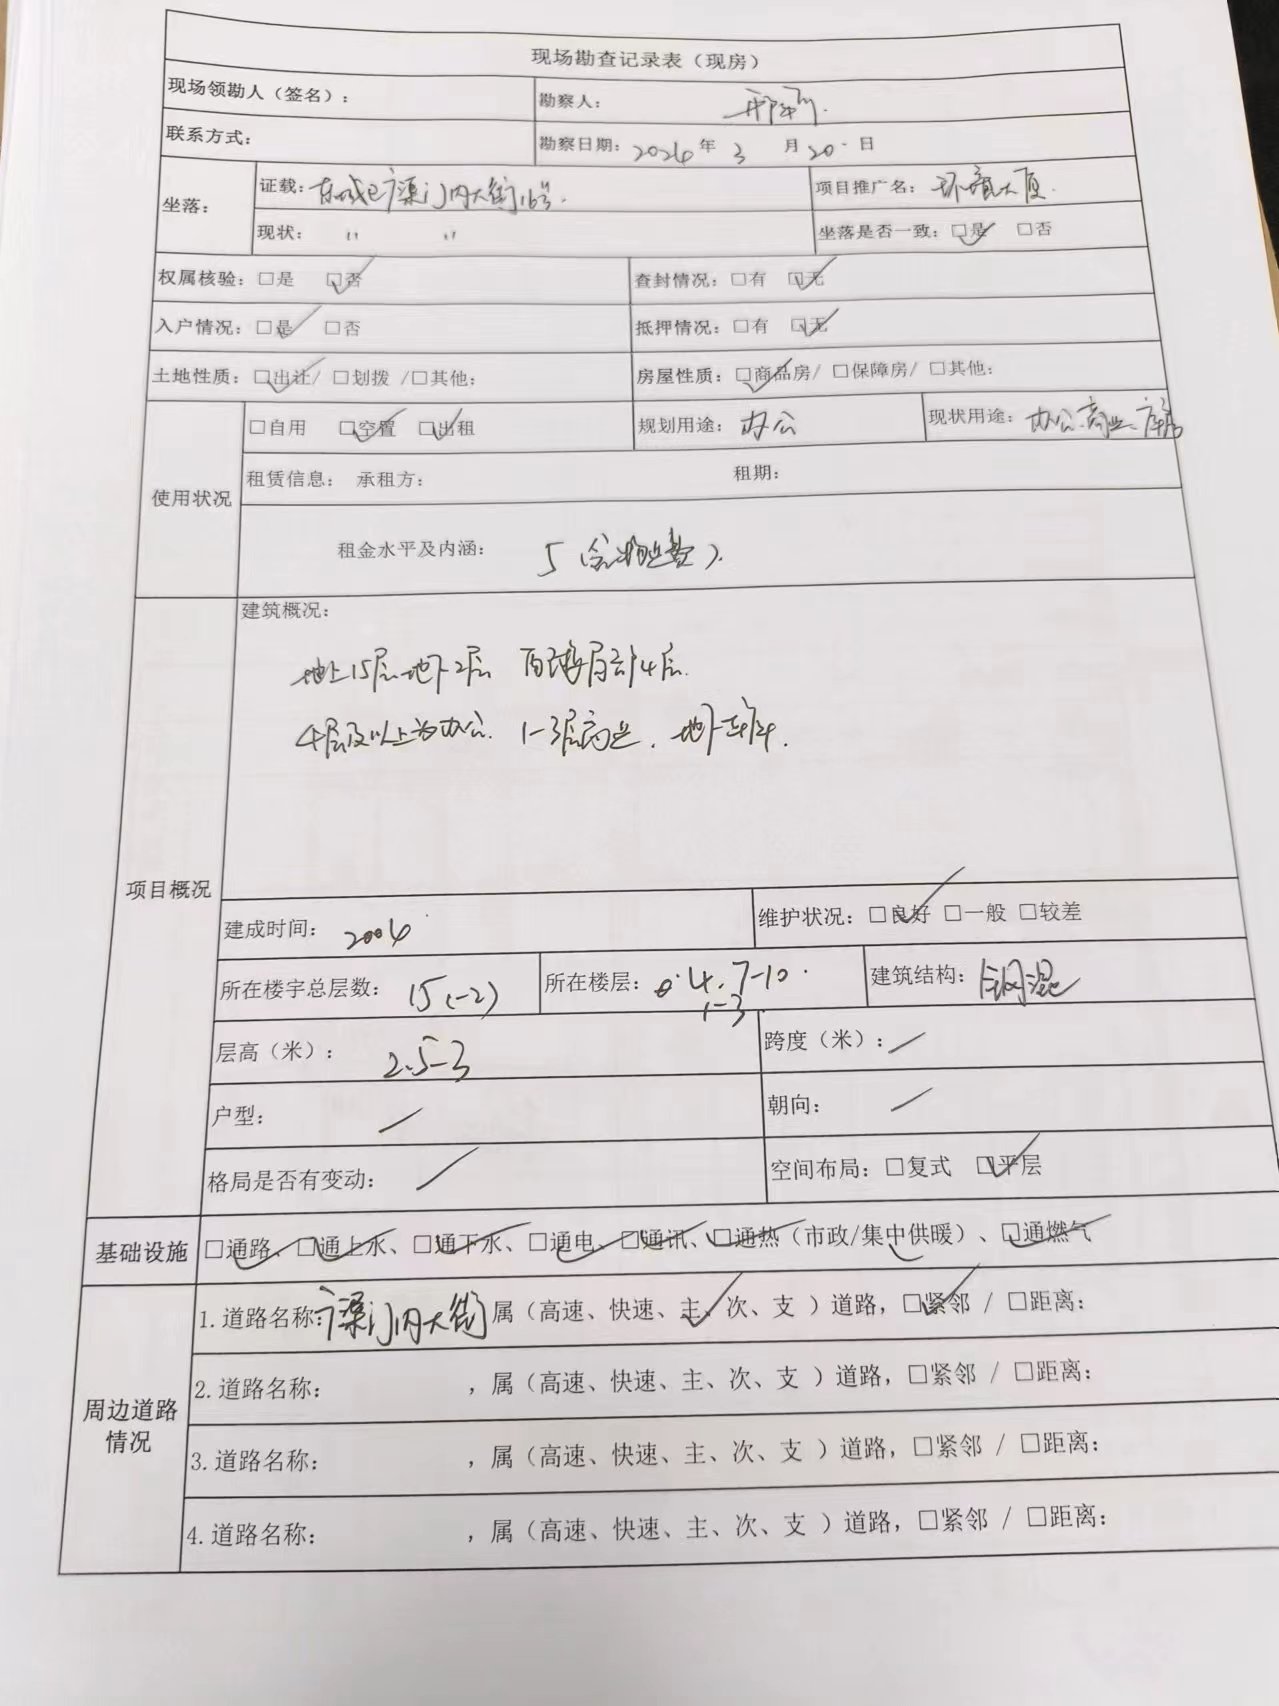 现场勘查记录表（现房）
现场领勘人（签名）： 勘察人：
联系方式： 勘察日期：2024年3月20日
坐落： 证载：东城区广渠门内大街16号. 项目推广名：环境大厦.
现状：〃 〃 坐落是否一致：☑是 □否
权属核验：□是 ☑否 查封情况：□有 ☑无
入户情况：☑是 □否 抵押情况：□有 ☑无
土地性质：☑出让/ □划拨 /□其他； 房屋性质：☑商品房/ □保障房/ □其他：
使用状况 □自用 ☑空置 ☑出租 规划用途：办公 现状用途：办公、商业、库房
租赁信息： 承租方： 租期：
租金水平及内涵： 5（含物业费）.
项目概况 建筑概况：
地上15层 地下2层 4层.
4层及以上为办公. 1-3层商业. 地下车库.
建成时间：2004 维护状况：☑良好 □一般 □较差
所在楼宇总层数：15(-2) 所在楼层：4.7-10 建筑结构：钢混
1-3
层高（米）：2.5-3 跨度（米）：/
户型：/ 朝向：/
格局是否有变动：/ 空间布局：□复式 ☑平层
基础设施 ☑通路、☑通上水、☑通下水、☑通电、☑通讯、☑通热（市政/集中供暖）、☑通燃气
周边道路情况 1.道路名称：广渠门内大街 属（高速、快速、主✓、次、支 ）道路，☑紧邻 / □距离：
2.道路名称： ，属（高速、快速、主、次、支 ）道路，□紧邻 / □距离：
3.道路名称： ，属（高速、快速、主、次、支 ）道路，□紧邻 / □距离：
4.道路名称： ，属（高速、快速、主、次、支 ）道路，□紧邻 / □距离：